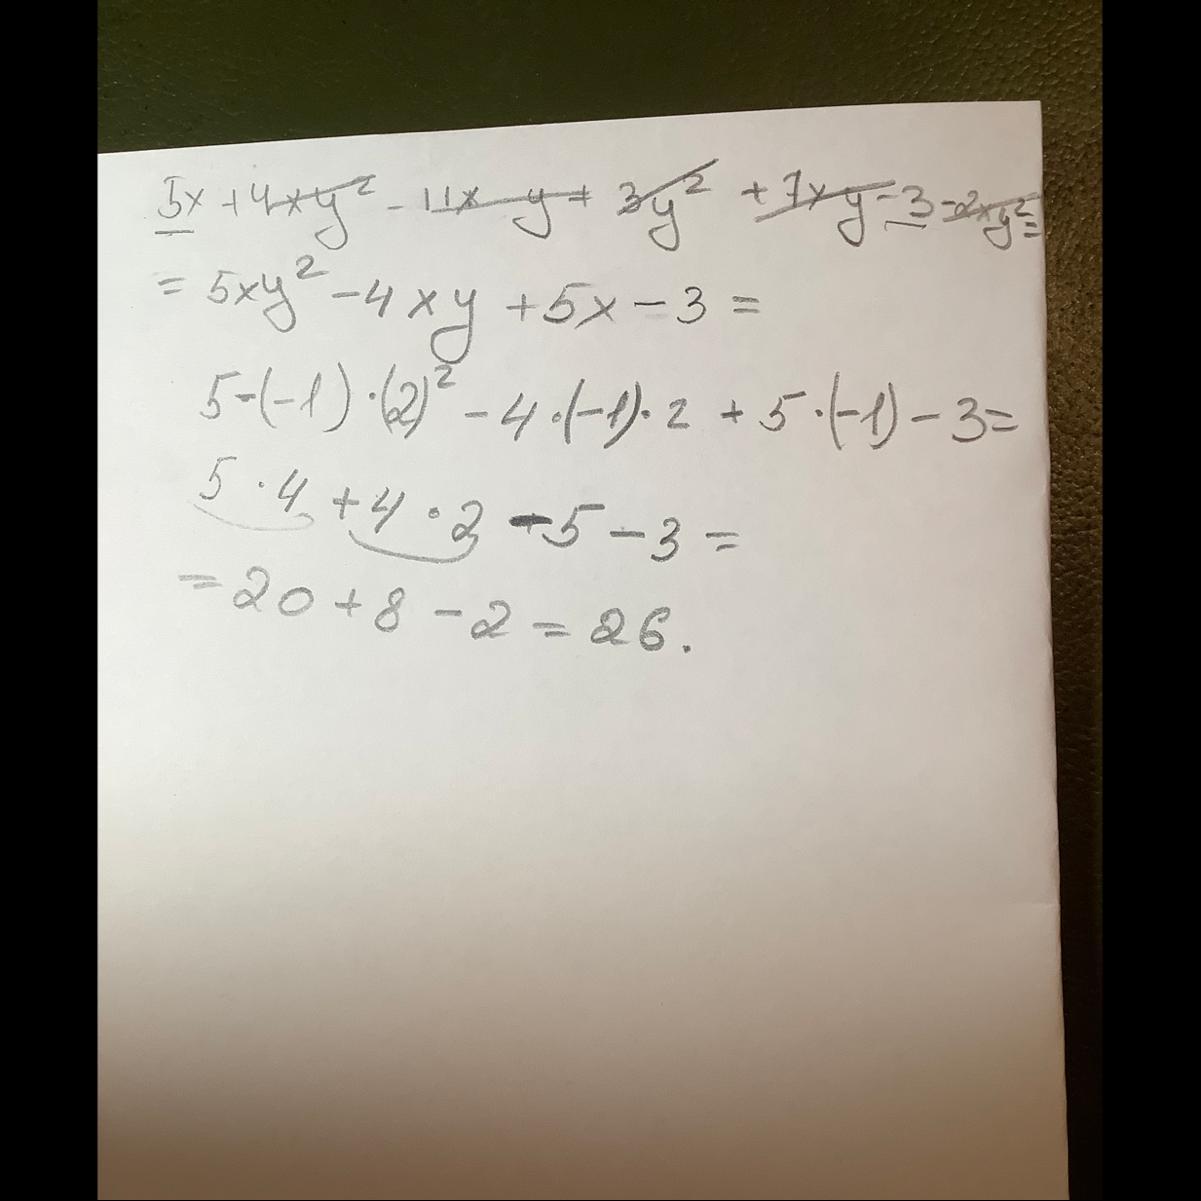 5x + 4xy² - 11x y + 3y² + 7xy - 3 - 2xy² =
= 5xy² - 4xy + 5x - 3 =
5·(-1)·(2)² - 4·(-1)·2 + 5·(-1) - 3 =
5·4 + 4·2 - 5 - 3 =
= 20 + 8 - 2 = 26.